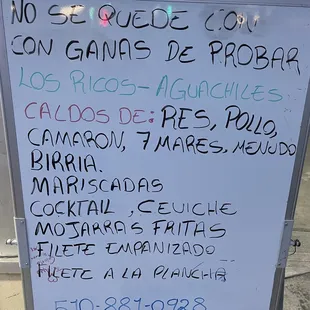 NO SE QUEDE CON
CON GANAS DE PROBAR
LOS RICOS-AGUACHILES
CALDOS DE: RES, POLLO,
CAMARON, 7 MARES, MENUDO
BIRRIA.
MARISCADAS
COCKTAIL, CEVICHE
MOJARRAS FRITAS
FILETE EMPANIZADO
FILETE A LA PLANCHA
510-881-0928